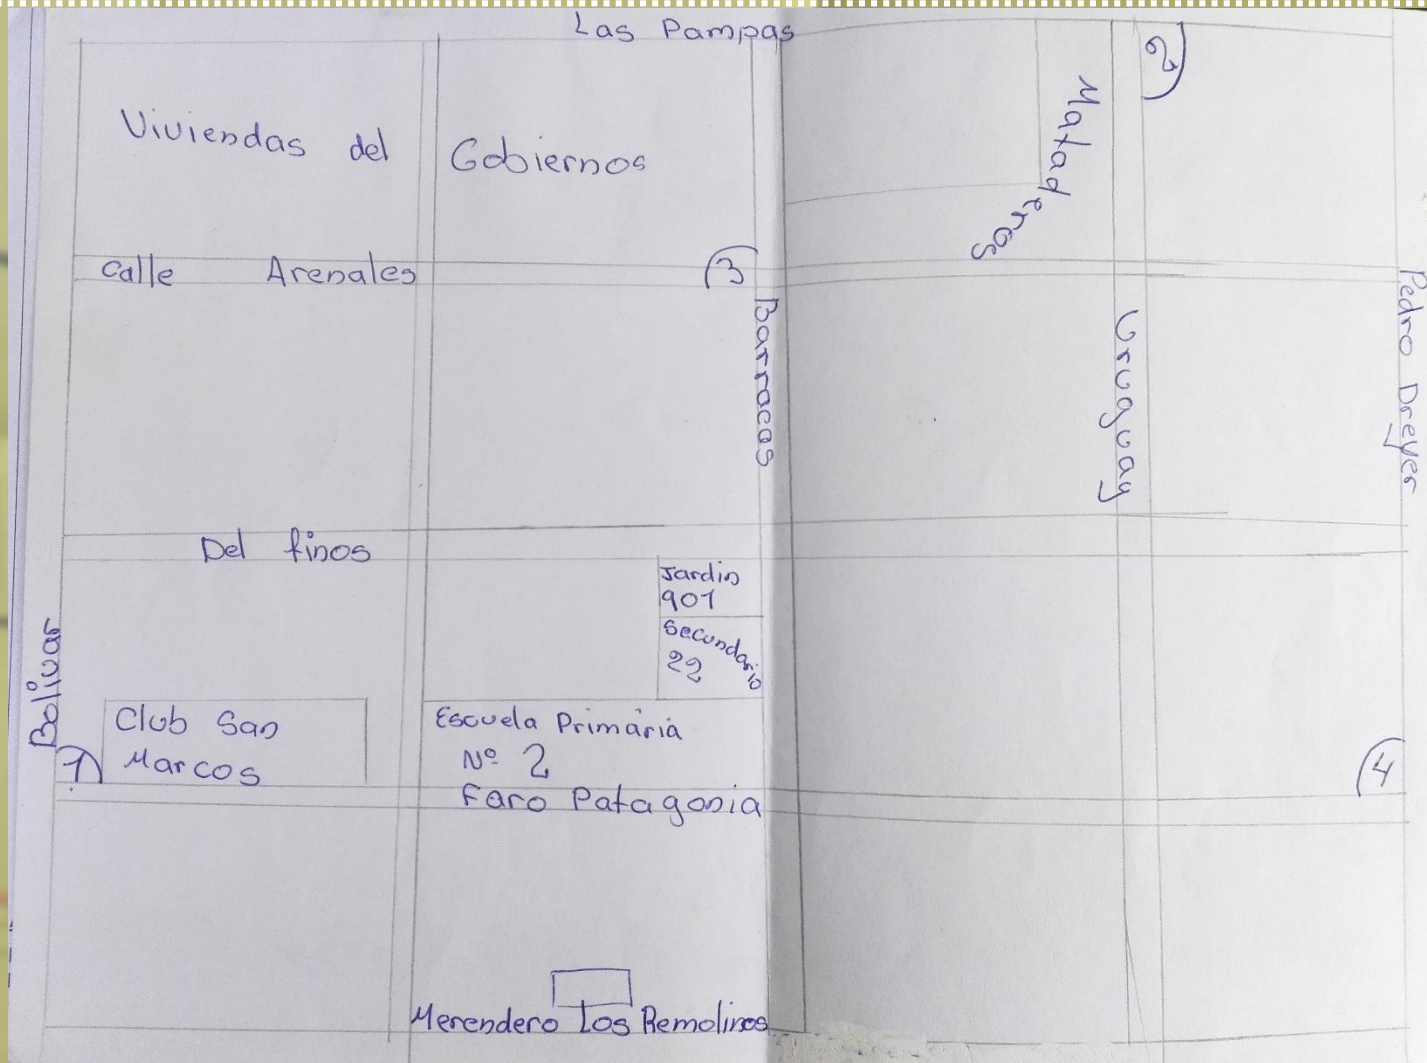 Las Pampas
Viviendas del Gobiernos
Mataderos
2
calle Arenales
3
Barracas
Uruguay
Pedro Dreyer
Del finos
Jardin
901
Secundario
22
Bolivar
1
Club San
Marcos
Escuela Primaria
Nº 2
Faro Patagonia
4
Merendero Los Remolinos